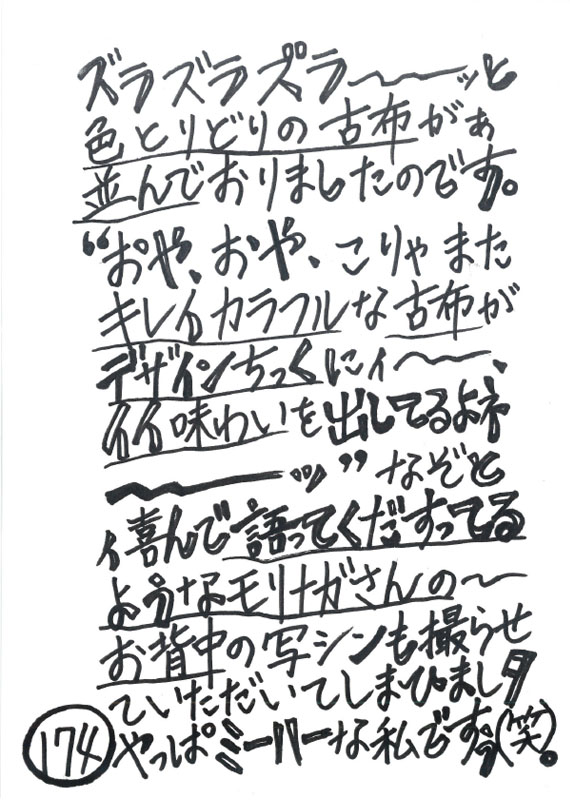 ズラズラズラ〜〜ッと
色とりどりの古布がぁ
並んでおりましたのです。
“おや、おや、こりゃまた
キレイカラフルな古布が
デザインちっくにィ〜〜、
イイ味わいを出してるよネ
〜〜ッッ”なぞと
ィ喜んで語ってくだすってる
ようなモリナガさんの〜
お背中の写シンも撮らせ
ていただいてしまひましタ
やっぱミーハーな私ですぅ(笑)。
174